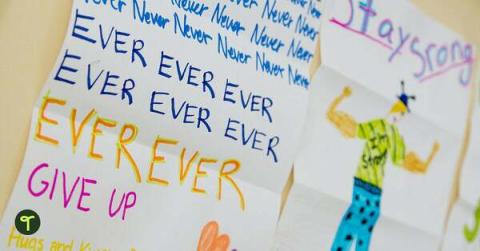 Never Never Never Never
Never Never Never Never Never
EVER EVER EVER
EVER EVER EVER
EVER EVER
GIVE UP
Hugs and
Stay Srong
I'm
Strong